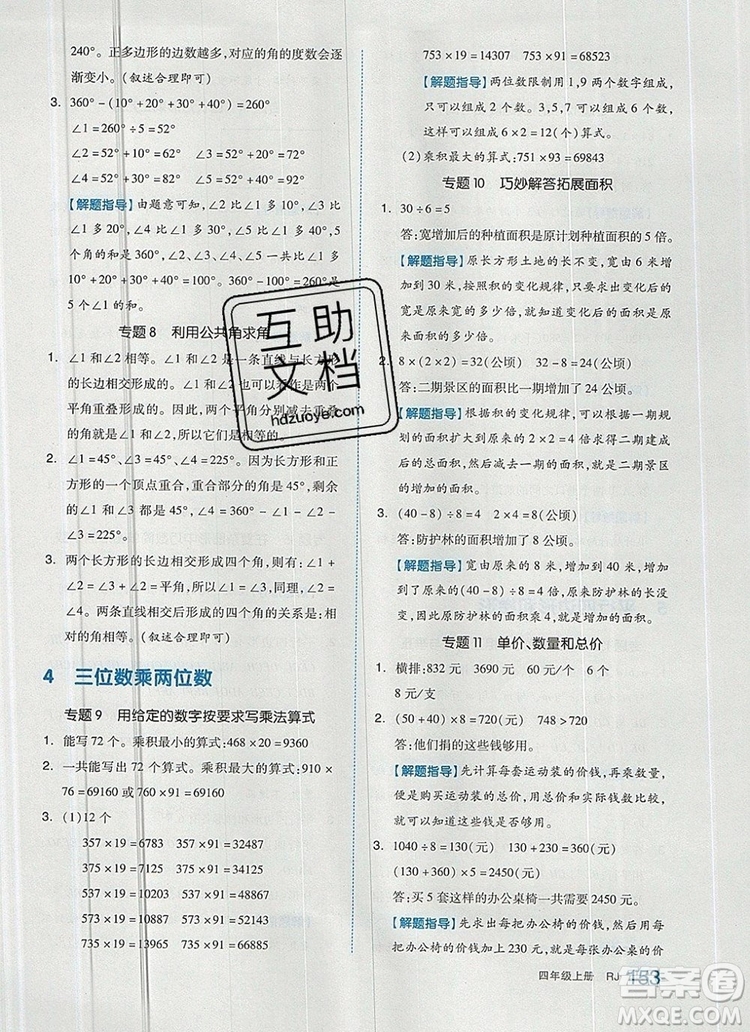 240°。正多边形的边数越多,对应的角的度数会逐
渐变小。(叙述合理即可)
3. 360°-(10°+20°+20°+50°)=260°
∠1=260°÷5=52°
∠2=62° ∠5=62° ∠3=72°
∠4=52°+20°=72°
【解题指导】由题意可知,∠2比∠1多10°,∠3比
∠1多20°,∠4比∠1多20°,∠5比∠1多10°,
5个角的和是360°,360°比5个∠1多10°+
20°+20°+10°=60°,所以360°减去60°就是
5个∠1的和。
专题8 利用公共角求角
1. ∠1和∠2相等。∠1是一条直线与长方形
的长边相交形成的。∠2也可以看作是两条
长边相交形成的。因此,∠1和∠2是两个
平角重叠形成的。两个平角分别减去重叠
的角就是∠1和∠2,所以它们是相等的。
2. ∠1=45° ∠2=45° 因为长方形和正
方形的一个顶点重合,所以重叠形成的∠3
加上∠1是90°,∠1是45°,∠3是45°,剩余
的角都是45°,所以∠2=45°。∠1+∠2+
∠3=225°。
3. 两个长方形的长边相交形成四个角,则有:
∠1+∠2=平角,所以∠1=∠3,同理,∠2=
∠4。两条直线相交后形成的四个角的关系
为对角相等。(叙述合理即可)
4 三位数乘两位数
专题9 用给定的数字按要求写乘法算式
1. 能写72个。乘积最小的算式:468×20=9360
2. 一共能写出72个算式。乘积最大的算式:910×
76=69160或760×91=69160
3. (1)12个
357×19=6783 357×91=32487
375×19=7125 375×91=34125
537×19=10203 537×91=48867
573×19=10887 573×91=52143
735×19=13965 735×91=66885
753×19=14307 753×91=68523
【解题指导】两位数限制用1,9两个数字组成,
只可以组成2个数。3,5,7可以组成6个数,
这样可以组成6×2=12(个)算式。
(2)乘积最大的算式:751×93=69843
专题10 巧妙解答拓展面积
1. 30÷6=5
答:宽增加后的种植面积是原计划种植面积的5倍。
【解题指导】原长方形土地的长不变,宽由6米增
加到30米,根据积的变化规律,可以发现,现在的
宽是原来宽的多少倍,现在的面积就是原来面积的多少倍。
2. 8×(2×2)=32(公顷) 32-8=24(公顷)
答:二期景区的面积比一期增加了24公顷。
【解题指导】根据积的变化规律,可以根据一期规
划的面积扩大到原来的2×2=4倍求得二期建成
后的总面积,然后减去一期的面积,就是二期景区
的增加的面积。
3. (40-8)÷8=4 2×4=8(公顷)
答:防护林的面积增加了8公顷。
【解题指导】宽由8米,增加到40米,增加了
32米,根据积的变化规律可以发现,增加的宽度
是原来宽度的(40-8)÷8=4倍,所以增加的面积
就是原来的4倍,因此原防护林的面积乘4,就是
没变化的面积。
专题11 单价、数量和总价
1. 横排:832元 3690元 60元 4件 6个
8元/支
2. (50+40)×8=720(元) 788>720
答:他们捐的这些钱够用。
【解题指导】先计算每套运动装的价钱,再计算这
些便购买运动装的总价,然后和实际钱数比较,
就可以知道所捐的这些钱够不够。
3. 1040÷8=130(元) 130+230=360(元)
(130+360)×5=2450(元)
答:买5套这样的办公桌椅一共需要2450元。
【解题指导】先求出每把办公椅的价钱,然后用每
把办公椅的价钱加上230元,就是每张办公桌的价
四年级上册 RJ 153
互助
文档
hdzuoye.com
答案圈
MXQE.COM